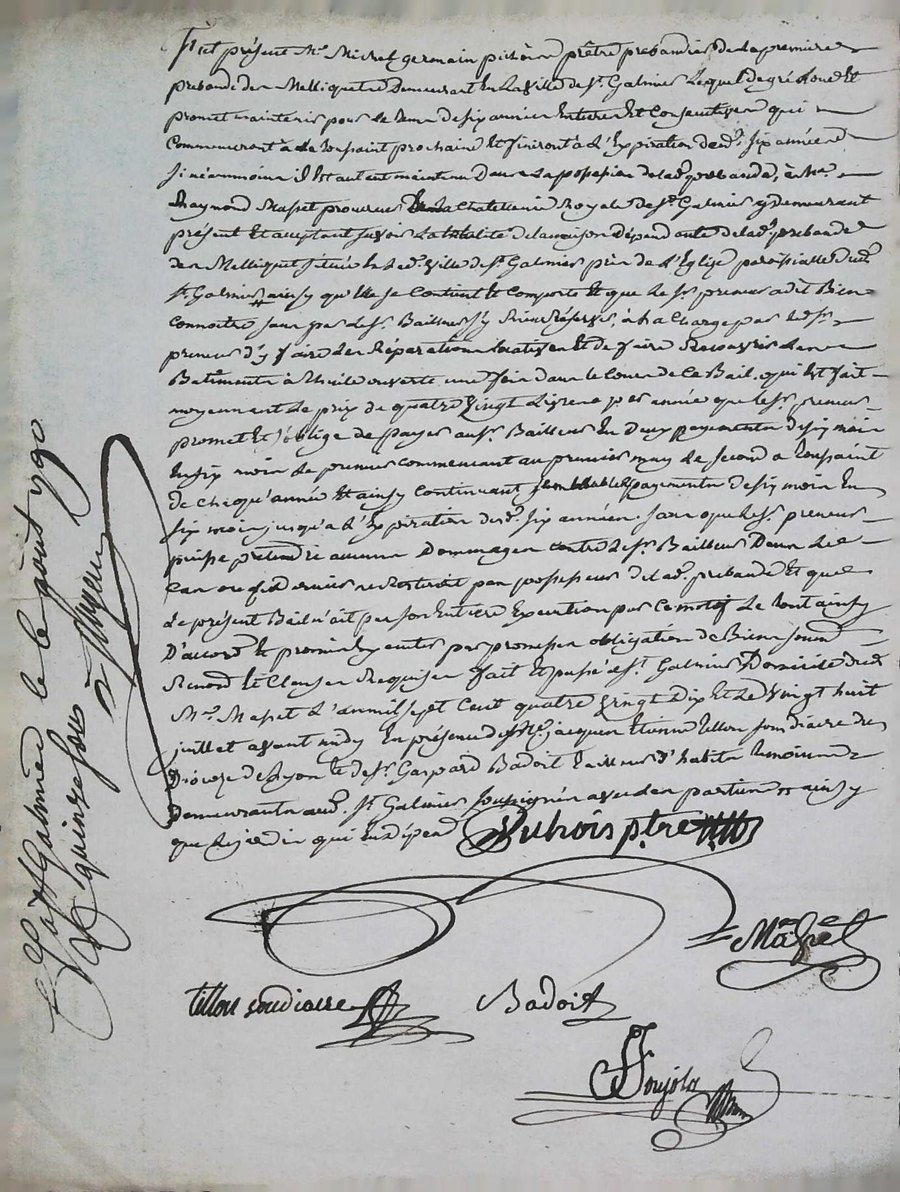 fut présent Mre Michel germain prêtre prebandier de la premiere
prebande des Melliquet Demeurant En la ville de St Galmier Lequel de gré Loue Et
promet maintenir pour le tems de six années Entieres Et Consecutives qui
Commenceront a la toussaint prochaine Et finiront à L'Expiration desd. six années
si néanmoins il Est autant maintenu Dans La possession de lad. prebande, à Me
Raymond Masset procureur En La Chatellenie Royale de St Galmier y demeurant
présent Et acceptant savoir La totalité de la maison Dépendante de lad. prebande
des Melliquet située En lad. ville de St Galmier près de L'Eglise paroissialle dud.
St Galmier ainsy qu'Elle se Contient Et Comporte Et que Le Sr preneur a dit Bien
Connoitre sans par le Sr Bailleur s'y Rien Réserver, à la Charge par led. Sr
preneur d'y faire les Réparations locatives Et de faire Recouvrir Les
Batimentsà thuile ouverte une fois dans le Cours de Ce Bail. qui Est fait
moyennant Le prix de quatre Vingt Livres par année que le Sr preneur
promet Et s'oblige de payer au Sr Bailleur En deux payements de six mois
En six mois Le premier commencant au premier may Le second a toussaint
de Chaqu'année Et ainsy Continuant semblables payements de six mois En
six mois jusqu'à L'Expiration desd. six années. sans que le Sr preneur
puisse prétendre aucuns Dommages contre Le Sr Bailleur Dans Le
Cas ou Ce dernier ne Resteroit pas possesseur de lad. prebande Et que
Le présent Bail n'ait pas son Entiere Execution par Ce motif Le tout ainsy
D'accord Et promis par promesse obligation de Biens soum.
Renon. Et Clauses Requises fait Et passé a St Galmier Domicile dud.
Me Masset L'an mil sept Cent quatre Vingt Dix Et Le Vingt huit
juillet avant midy En présence de Me jacques Etienne tillon soudiacre du
Diocèze de Lyon Et de Sr Gaspard Badoit tailleur d'habits temoins
Demeurants aud. St Galmier soussignés avec les parties ainsy
que Le jardin qui En Dépend
Dubois ptre
Masset
tillon soudiacre Badoit
Ct a St Galmier le 6 aout 1790
Rç quinze sols